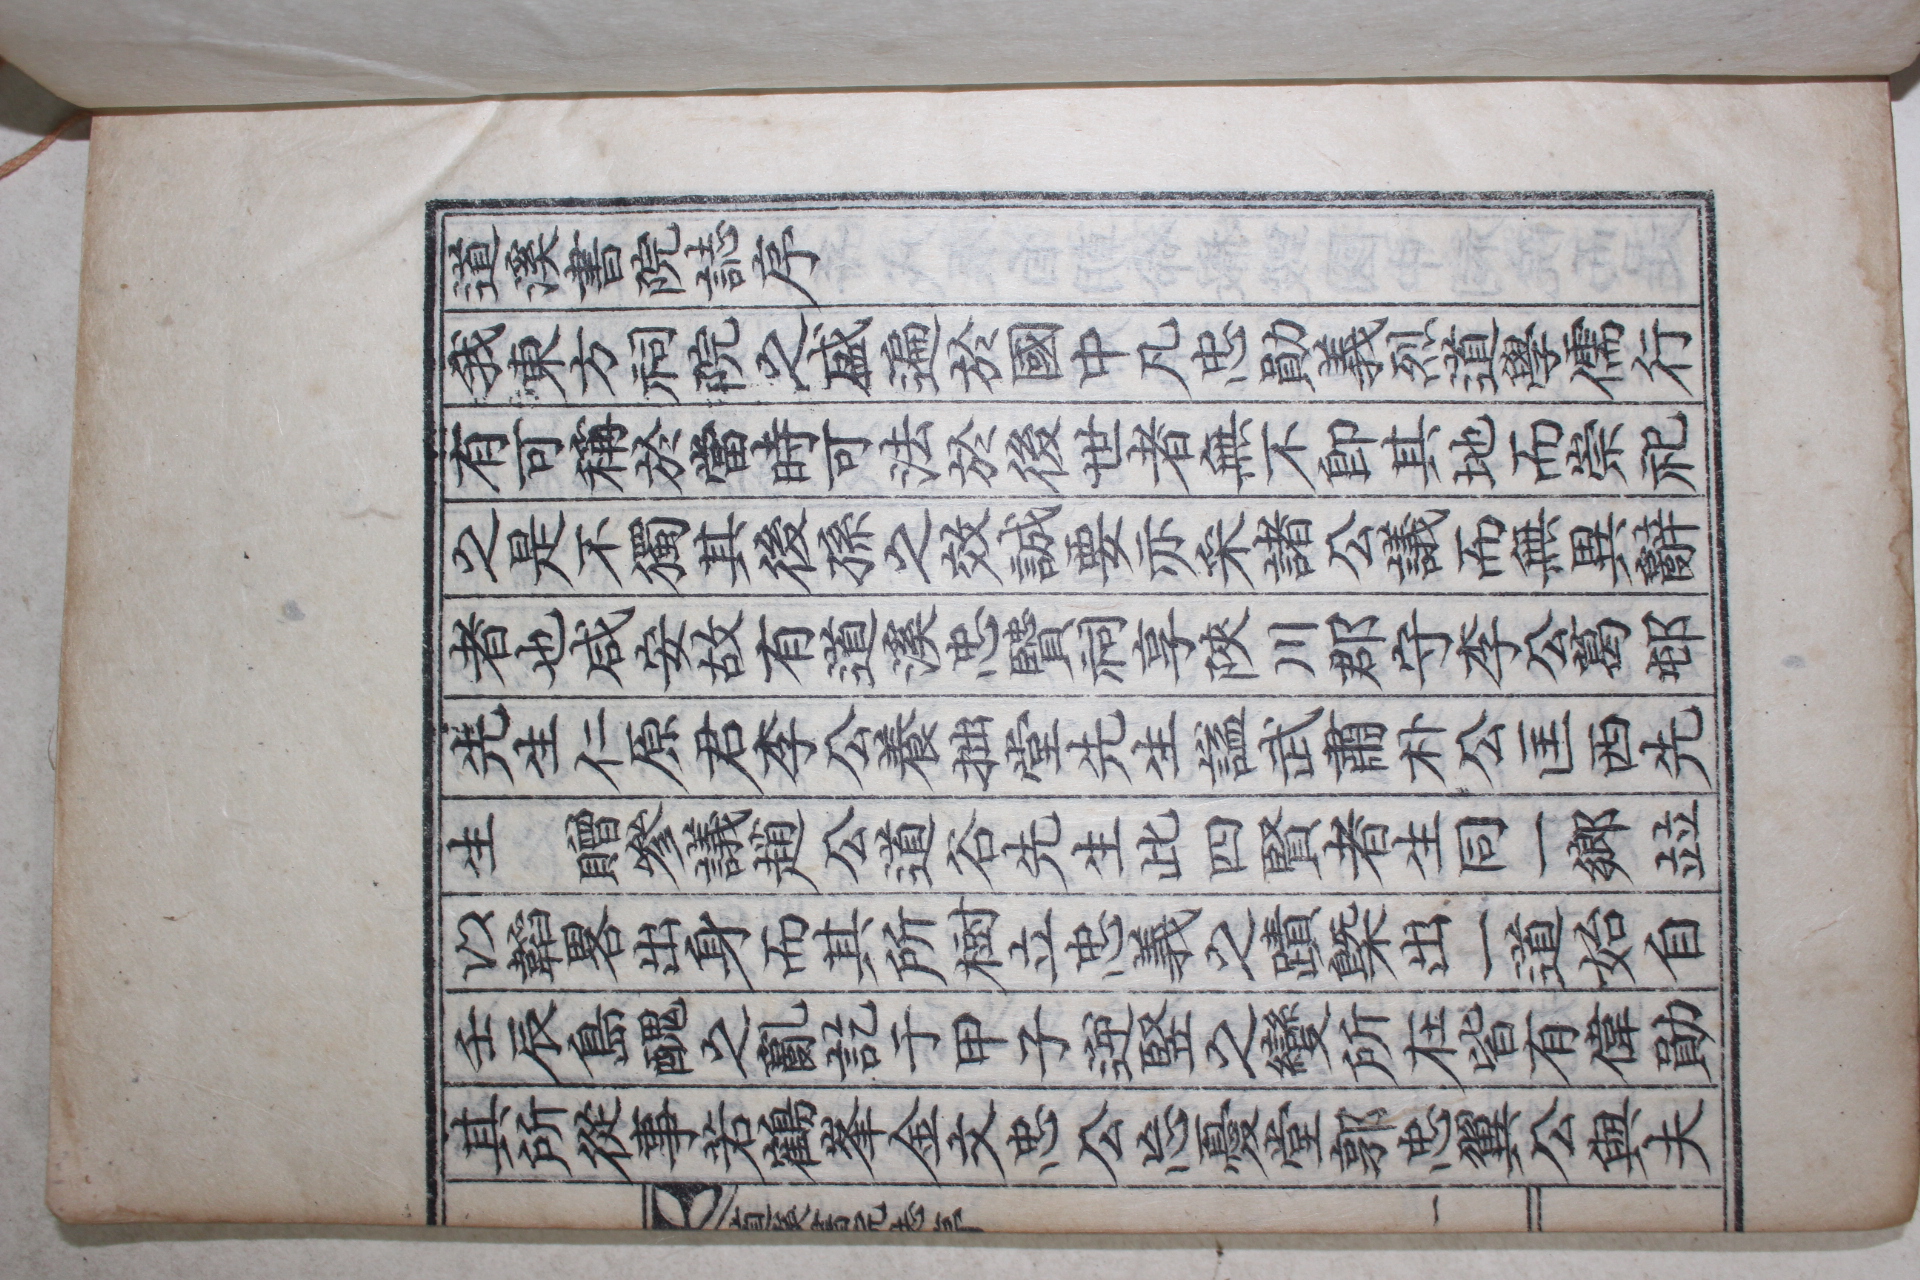 道溪書院誌序
我東方祠院之盛遍於國中凡忠勛義烈道學儒行
有可稱於當時可法於後世者無不卽其地而崇祀
之是不獨其後孫之效誠要亦采諸公議而無異辭
者也咸安故有道溪忠賢祠享陜川郡守李公葛邨
先生仁原君李公養拙堂先生謚武肅朴公匡西先
生 贈參議趙公道谷先生此四賢者生同一鄕竝
以韜畧出身而其所樹立忠義之蹟槩出一道始自
壬辰島醜之亂訖于甲子逆竪之變所在皆有偉勛
其所從事若鶴峯金文忠公忘憂堂郭忠翼公與夫
道溪書院誌序 一